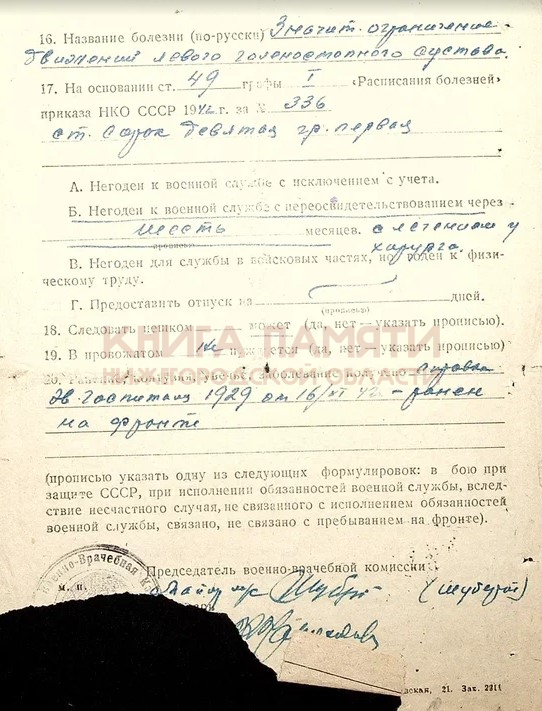 16. Название болезни (по-русски) Значит. ограничение
движений левого голеностопного сустава.
17. На основании ст. 49 графы I „Расписания болезней“
приказа НКО СССР 1942 г. за № 336
ст. Сорок девятая гр. первая
А. Негоден к военной службе с исключением с учета.
Б. Негоден к военной службе с переосвидетельствованием через
шесть месяцев. с лечением у
(прописью) хирурга.
В. Негоден для службы в войсковых частях, но годен к физи-
ческому труду.
Г. Предоставить отпуск на дней.
(прописью)
18. Следовать пешком может (да, нет — указать прописью).
19. В провожатом не нуждается (да, нет — указать прописью)
КНИГА ПАМЯТИ
НИЖЕГОРОДСКОЙ ОБЛАСТИ
20. Ранение, контузия, увечье, заболевание получено
Эв. госпиталя 1929 от 16/VI 42 — ранен
на фронте
(прописью указать одну из следующих формулировок: в бою при
защите СССР, при исполнении обязанностей военной службы, вслед-
ствие несчастного случая, не связанного с исполнением обязанностей
военной службы, связано, не связано с пребыванием на фронте).
Военно-Врачебная
Председатель военно-врачебной комиссии
м. п.
Майор м/с (Шуберт)
21. Зак. 2211